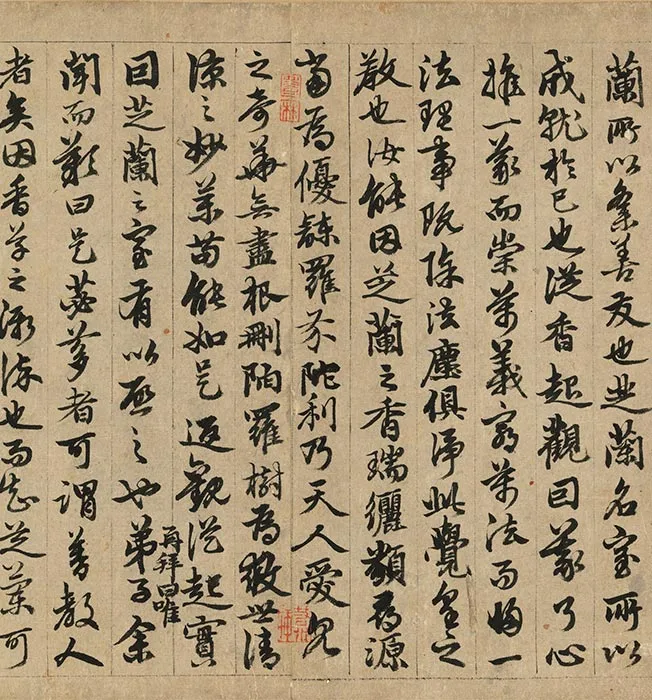 蘭所以集善友也芝蘭名室所以
成就於己也從香起觀因義了心
推一義而崇萬義窮萬法而歸一
法理事既除法塵俱淨此覺皇之
教也汝能因芝蘭之香瑞爲源
當爲優鉢羅芬陀利乃天人愛見
之奇華無盡根刪陏羅樹爲救世清
涼之妙藥苗能如是返觀從起實
因芝蘭之室有以啓之也弟子再拜曰唯余
聞而歎曰是苾芻者可謂善教人
者矣因香學之漸深也而知芝蘭可